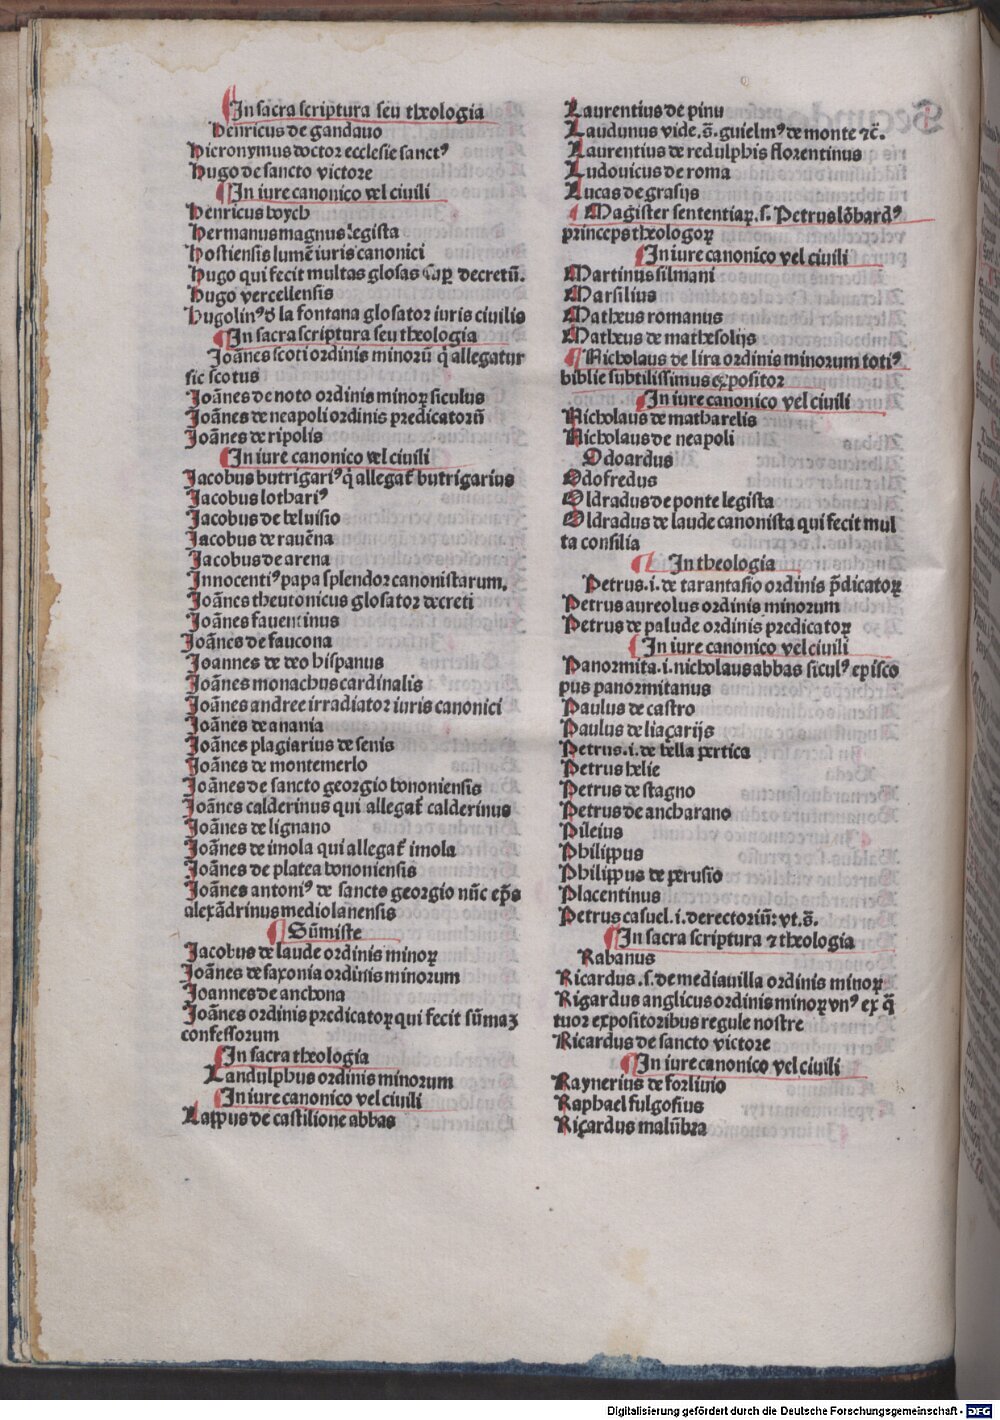 ¶In sacra scriptura seu theologia
Henricus de gandauo
Hieronymus doctor ecclesie sanctꝰ
Hugo de sancto victore
¶In iure canonico vel ciuili
Henricus boych
Hermanus magnus legista
Hostiensis lumē iuris canonici
Hugo qui fecit multas glosas sup̱ decretū.
Hugo vercellensis
Hugolinꝰ d̄ la fontana glosator iuris ciuilis
¶In sacra scriptura seu theologia
Joānes scoti ordinis minorū q̇ allegatur
sic scotus
Joānes de noto ordinis minoꝝ siculus
Joānes de neapoli ordinis predicatorū
Joānes de ripolis
¶In iure canonico vel ciuili
Jacobus butrigariꝰ q̇ allegat̄ butrigarius
Jacobus lothariꝰ
Jacobus de beluisio
Jacobus de rauēna
Jacobus de arena
Innocentiꝰ papa splendor canonistarum.
Joānes theutonicus glosator decreti
Joānes fauentinus
Joānes de faucona
Joannes de deo hispanus
Joānes monachus cardinalis
Joānes andree irradiator iuris canonici
Joānes de anania
Joānes plagiarius de senis
Joānes de montemerlo
Joānes de sancto georgio bononiensis
Joānes calderinus qui allegat̄ calderinus
Joānes de lignano
Joānes de imola qui allegat̄ imola
Joānes de platea bononiensis
Joānes antoniꝰ de sancto georgio nūc ep̄s
alexādrinus mediolanensis
¶Sūmiste
Jacobus de laude ordinis minoꝝ
Joānes de saxonia ordinis minorum
Joannes de anchona
Joānes ordinis predicatoꝝ qui fecit sūmaꝫ
confessorum
¶In sacra theologia
Landulphus ordinis minorum
¶In iure canonico vel ciuili
Lappus de castilione abbas
Laurentius de pinu
Laudunus vide. s̄. guielmꝰ de monte ⁊c̄.
Laurentius de redulphis florentinus
Ludouicus de roma
Lucas de grasijs
¶Magister sententiaꝝ. s. Petrus lōbardꝰ
princeps theologoꝝ
¶In iure canonico vel ciuili
Martinus silmani
Marsilius
Matheus romanus
Matheus de mathesolijs
¶Nicholaus de lira ordinis minorum totiꝰ
biblie subtilissimus expositor
¶In iure canonico vel ciuili
Nicholaus de matharelis
Nicholaus de neapoli
Odoardus
Odofredus
Oldradus de ponte legista
Oldradus de laude canonista qui fecit mul
ta consilia
¶In theologia
Petrus. i. de tarantasio ordinis p̄dicatoꝝ
Petrus aureolus ordinis minorum
Petrus de palude ordinis predicatoꝝ
¶In iure canonico vel ciuili
Panormita. i. nicholaus abbas siculꝰ episco
pus panormitanus
Paulus de castro
Paulus de liaçarijs
Petrus. i. de bella pertica
Petrus helie
Petrus de stagno
Petrus de ancharano
Pileius
Philippus
Philippus de perusio
Placentinus
Petrus casuel. i. derectoriū: vt. s̄.
¶In sacra scriptura ⁊ theologia
Rabanus
Ricardus. s. de mediauilla ordinis minoꝝ
Rigardus anglicus ordinis minoꝝ vnꝰ ex q̄
tuor expositoribus regule nostre
Ricardus de sancto victore
¶In iure canonico vel ciuili
Raynerius de forliuio
Raphael fulgosius
Riçardus malūbra
Digitalisierung gefördert durch die Deutsche Forschungsgemeinschaft - DFG